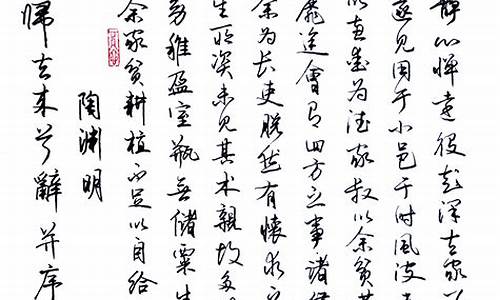 歸去来兮辭 并序
陶渊明
余家貧耕植不足以自给
幼稚盈室瓶無儲粟生
生所资未见其术親故多
余为长吏脱然有懷求之
靡途會有四方之事诸侯
以惠爱为德家叔以余贫苦
遂见用于小邑于时风波
静心惮遠役彭泽去家